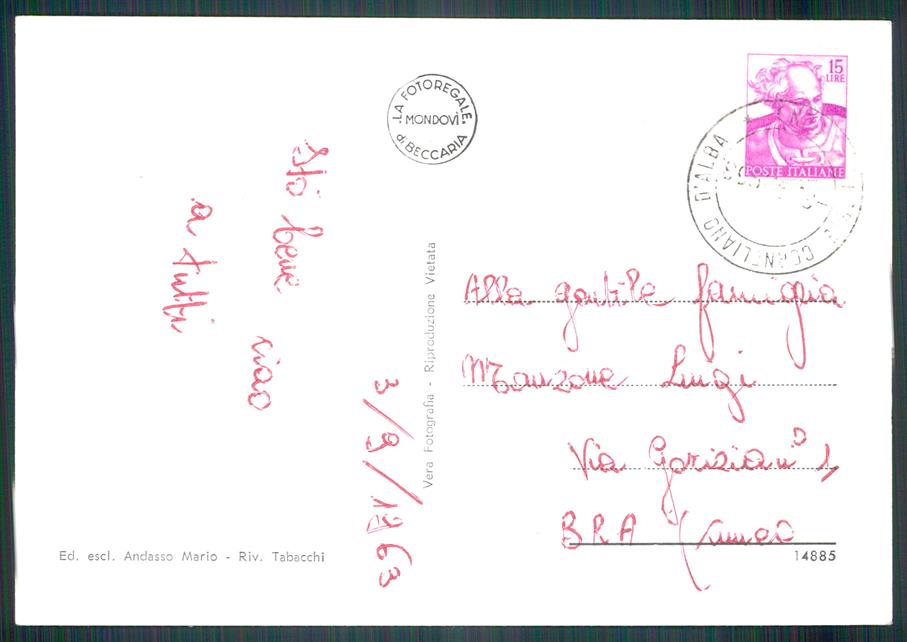 Stò bene ciao
a tutti
3/9/1963
LA FOTOREGALE
MONDOVÌ
di BECCARIA
Vera Fotografia - Riproduzione Vietata
Ed. escl. Andasso Mario - Riv. Tabacchi
15
LIRE
POSTE ITALIANE
CORNELIANO D'ALBA
Alla gentile famiglia
Manzone Luigi
Via
BRA (Cuneo
14885